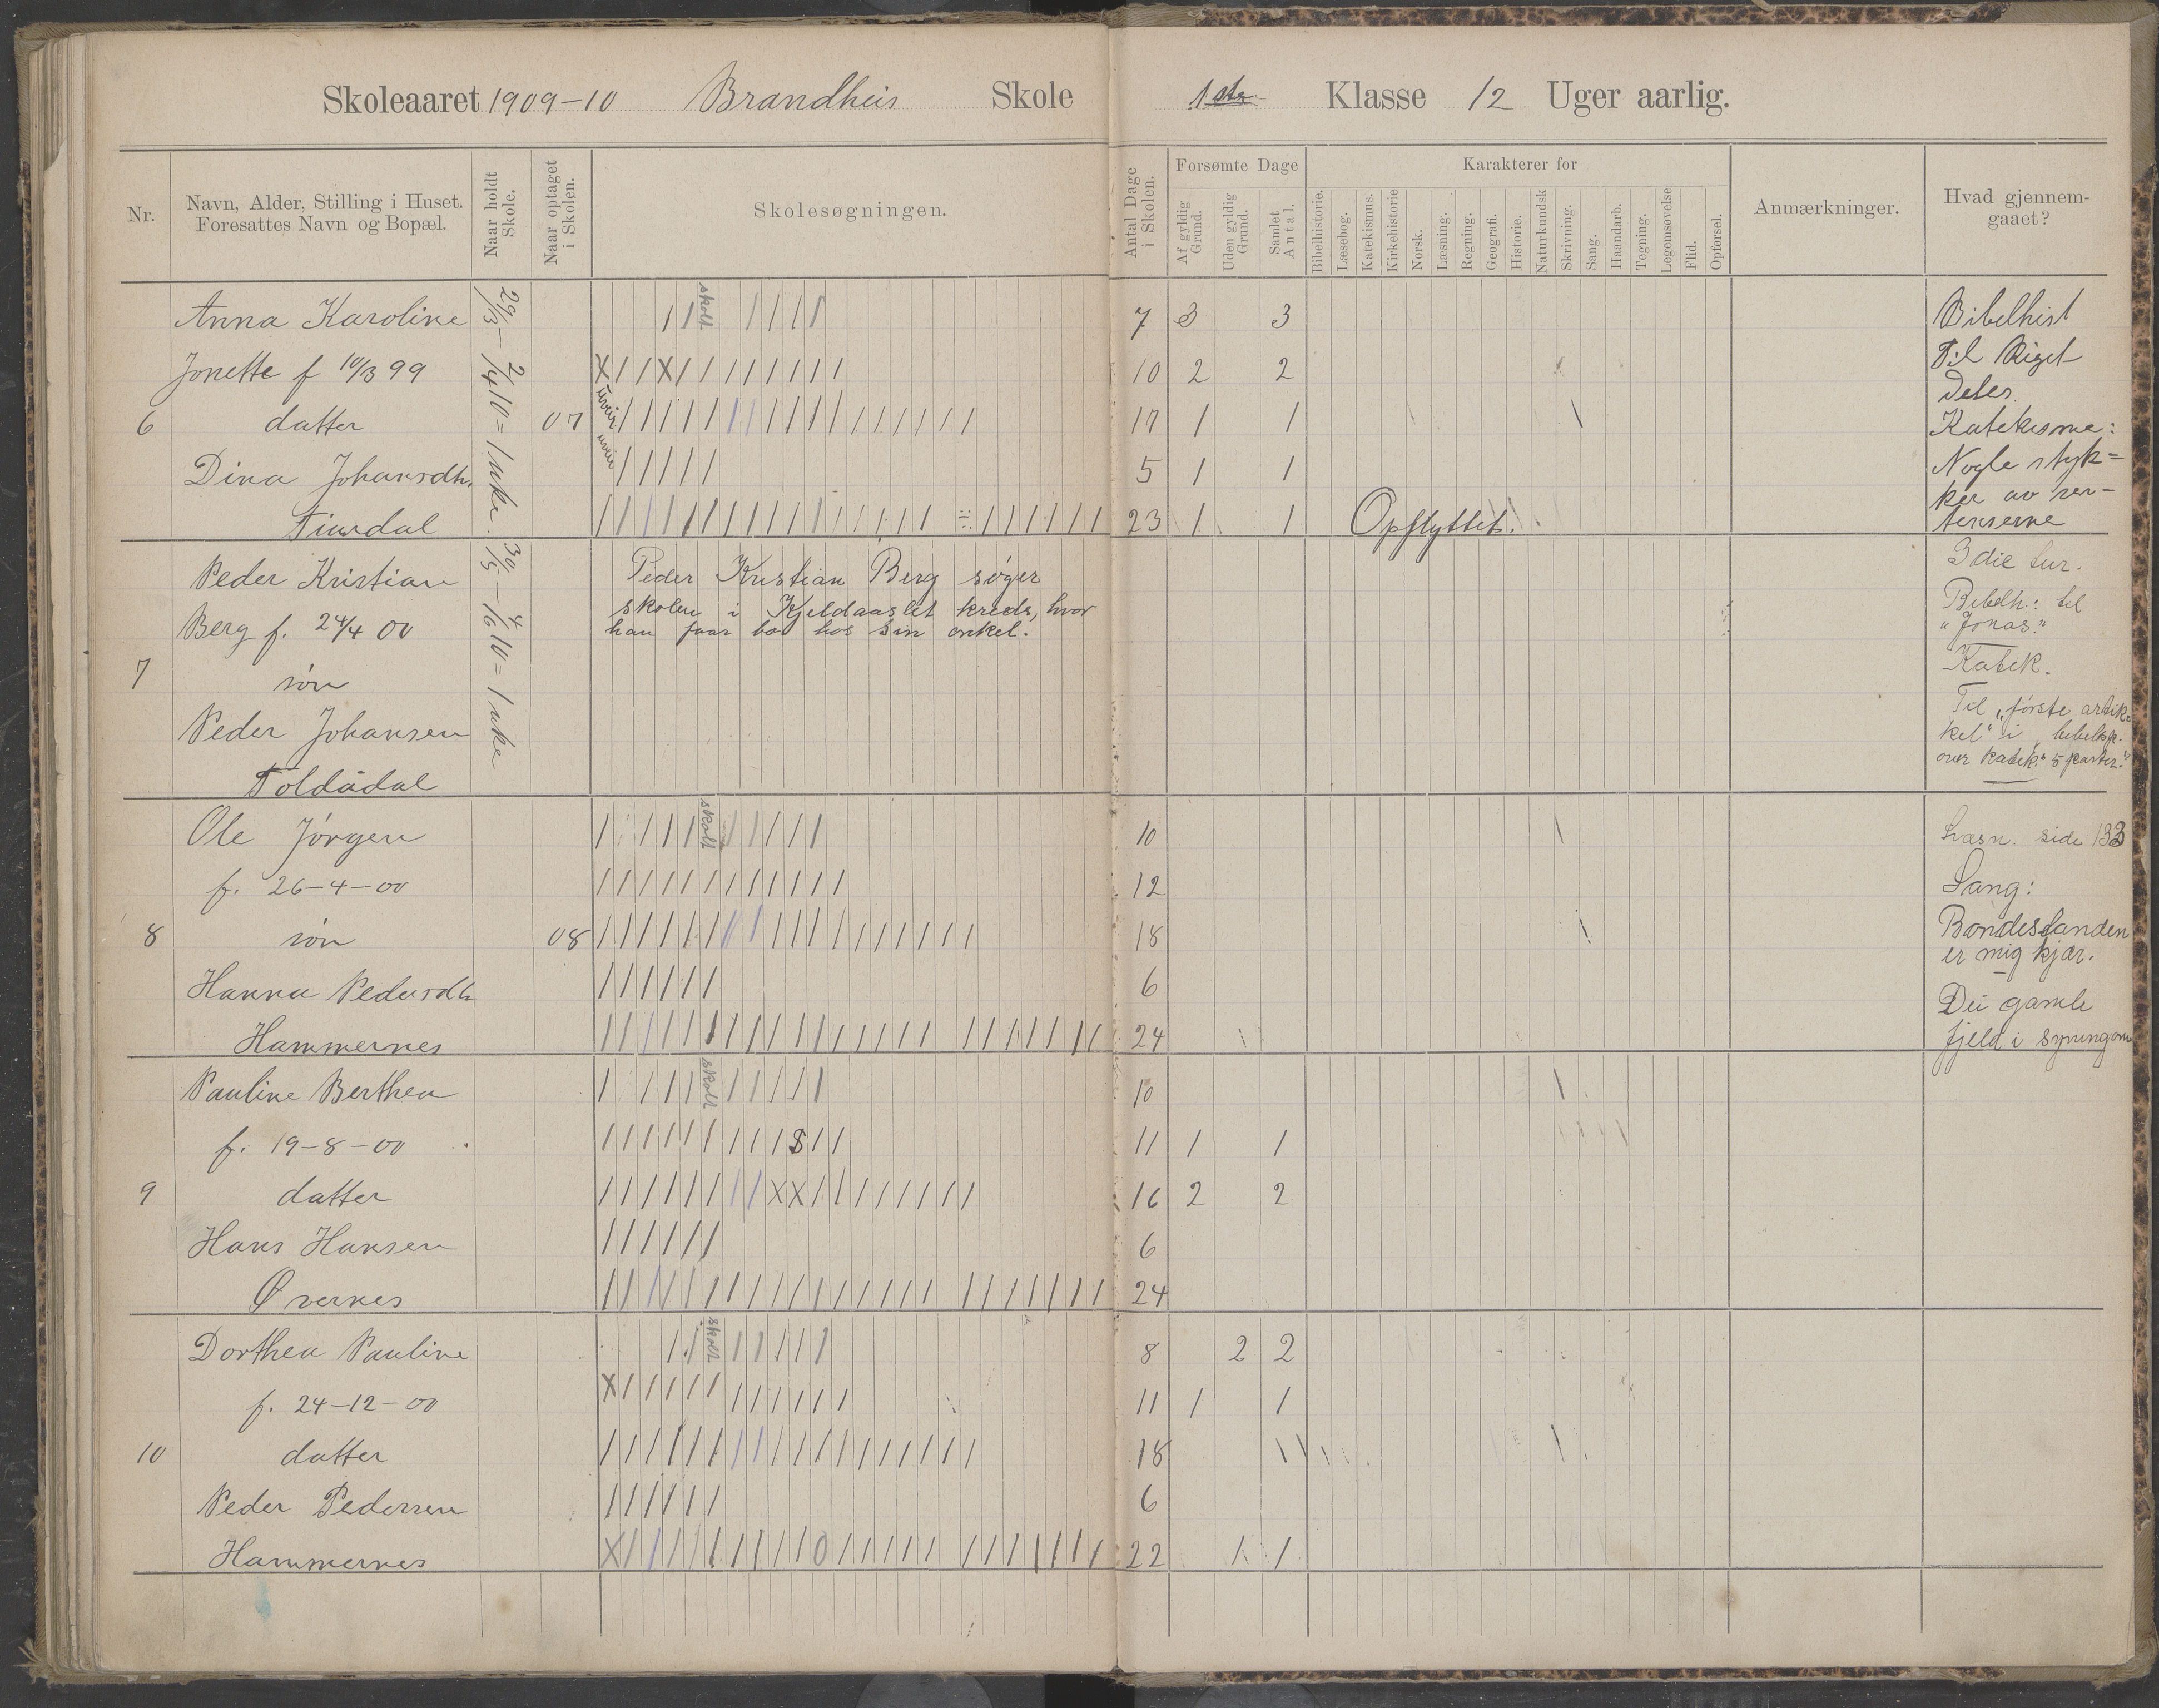 Skoleaaret 1909-10 Brandheis Skole 1ste Klasse 12 Uger aarlig.
Nr.
Navn, Alder, Stilling i Huset.
Foresattes Navn og Bopæl.
Naar holdt
Skole.
Naar optaget
i Skolen.
Skolesøgningen.
Antal Dage
i Skolen.
Forsømte Dage
Af gyldig
Grund.
Uden gyldig
Grund.
Samlet
Antal.
Karakterer for
Bibelhistorie.
Læsebog.
Katekismus.
Kirkehistorie
Norsk.
Læsning.
Regning.
Geografi.
Historie.
Naturkundsk
Skrivning.
Sang.
Haandarb.
Tegning.
Legemsøvelse
Flid.
Opførsel.
Anmærkninger.
Hvad gjennem-
gaaet?
29/3 - 2/4 10 = 1 uke.
30/5 - 4/6 10 = 1 uke
Anna Karoline skolt 7 3 3
Jonette f 10/3 99 10 2 2
6 datter 07 uveir 17 1 1
Dina Johansdtr. uveir 5 1 1
23 1 1 Opflyttet.
Bibelhist
Til Riget
deles.
Katekisme:
Nogle styk=
ker av sen-
tenserne
Peder Kristian
Berg f. 24/4 00
7 søn
Peder Johansen
Toldådal
Peder Kristian Berg søger
skolen i Kjeldaaslet kreds, hvor
han faar bo hos sin onkel.
3die tur.
Bibelh.: til
"Jonas."
Katek.
Til "første artik=
kel" i
over katek." 5 parter."
Ole Jørgen skolt 10
f. 26-4-00 12
8 søn 08 18
Hanna Pedersdtr 6
Hammernes 24
Læsn. side 133
Sang:
Bondestanden
er mig kjær.
Dei gamle
fjeld i syningom
Pauline Berthea skolt 10
f. 19-8-00 S 11 1 1
9 datter 16 2 2
Hans Hansen 6
Øvernes 24
Dorthea Pauline skolt 8 2 2
f. 24-12-00 11 1 1
10 datter 18
Peder Pedersen 6
Hammernes 22 1 1